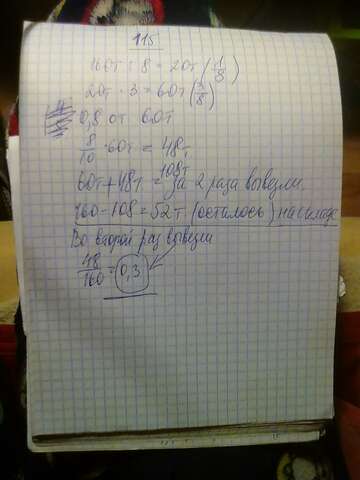 115
160т : 8 = 20т (1/8)
20т · 3 = 60т (3/8)
0,8 от 60т
8/10 · 60т = 48т
60т + 48т = 108т за 2 раза вывезли
160 - 108 = 52т (осталось) на складе
Во второй раз вывезли
48/160 = 0,3